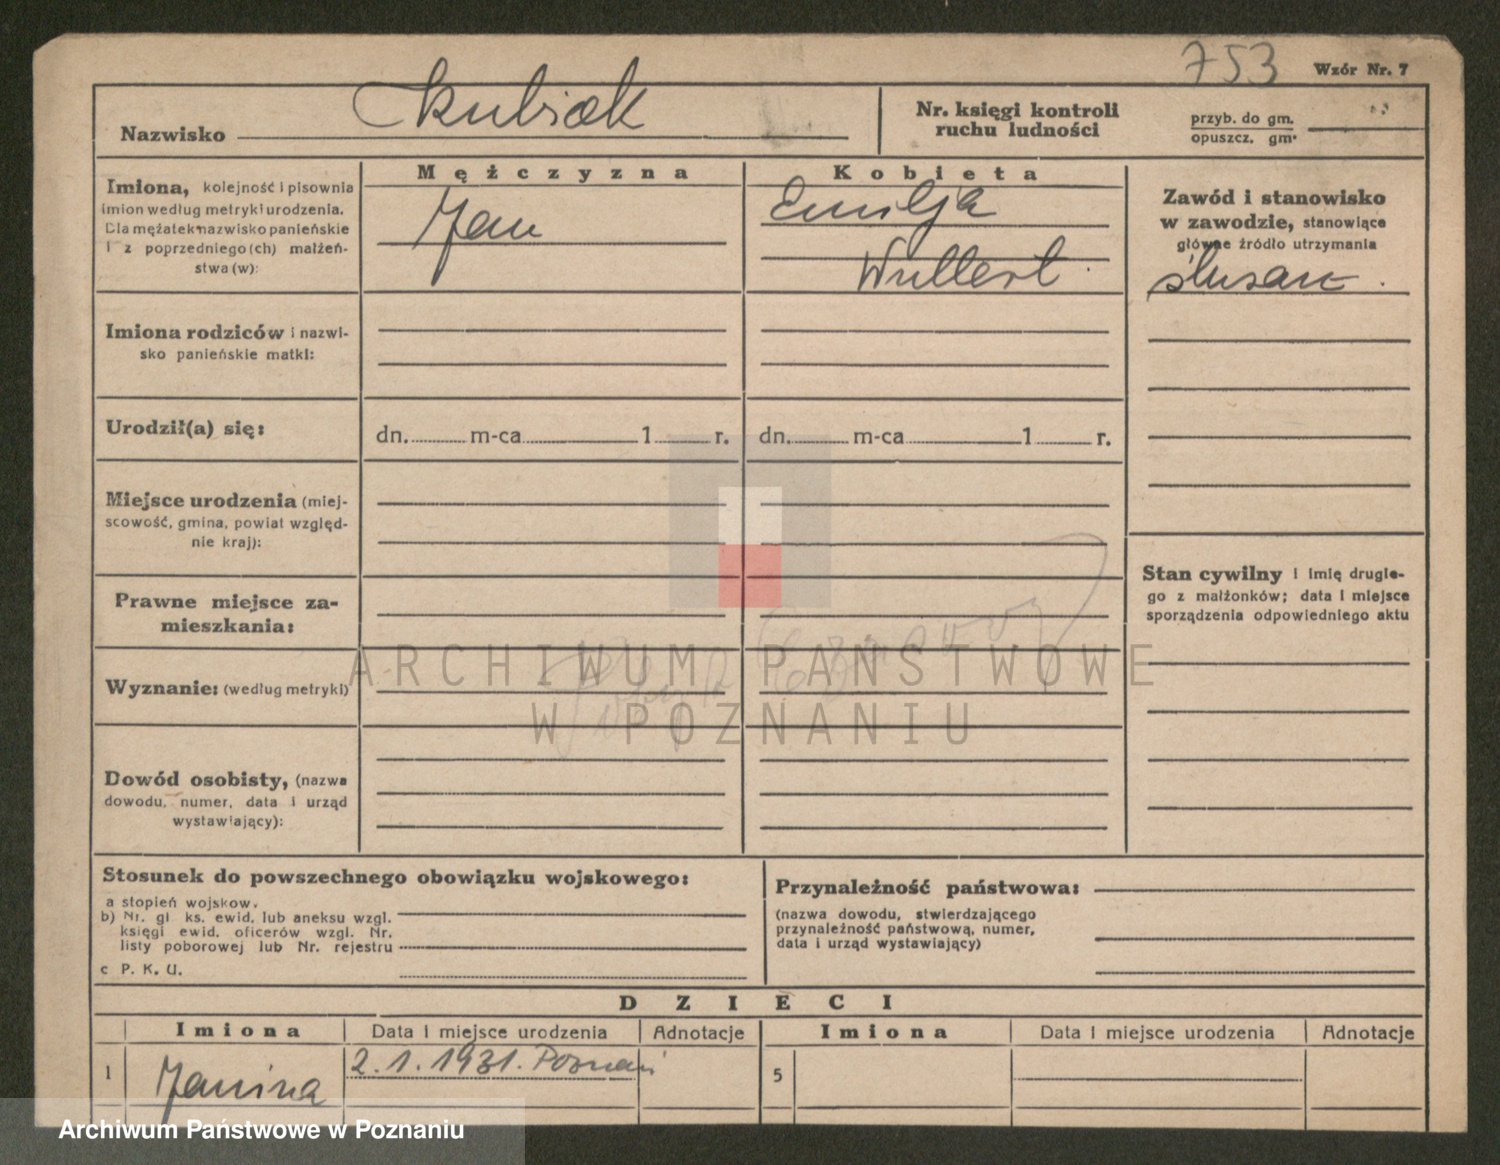 753
Wzór Nr. 7
Nazwisko Skubiak
Nr. księgi kontroli
ruchu ludności
przyb. do gm.
opuszcz. gm.
Imiona, kolejność i pisownia
imion według metryki urodzenia.
Dla mężatek nazwisko panieńskie
i z poprzedniego (ch) małżeń-
stwa (w):
Mężczyzna
Jan
Kobieta
Emilja
Wullert
Zawód i stanowisko
w zawodzie, stanowiące
główne źródło utrzymania
ślusarz
Imiona rodziców i nazwi-
sko panieńskie matki:
Urodził(a) się:
dn. m-ca 1 r.
dn. m-ca 1 r.
Miejsce urodzenia (miej-
scowość, gmina, powiat względ-
nie kraj):
Stan cywilny i imię drugie-
go z małżonków; data i miejsce
sporządzenia odpowiedniego aktu
Prawne miejsce za-
mieszkania:
Wyznanie: (według metryki)
ARCHIWUM PAŃSTWOWE
W POZNANIU
Dowód osobisty, (nazwa
dowodu, numer, data i urząd
wystawiający):
Stosunek do powszechnego obowiązku wojskowego:
a stopień wojskow.
b) Nr. gł ks. ewid. lub aneksu wzgl.
księgi ewid. oficerów wzgl. Nr.
listy poborowej lub Nr. rejestru
c P. K. U.
Przynależność państwowa:
(nazwa dowodu, stwierdzającego
przynależność państwową, numer,
data i urząd wystawiający)
DZIECI
Imiona Data i miejsce urodzenia Adnotacje Imiona Data i miejsce urodzenia Adnotacje
1 Janina 2.1.1931. Poznań 5
Archiwum Państwowe w Poznaniu